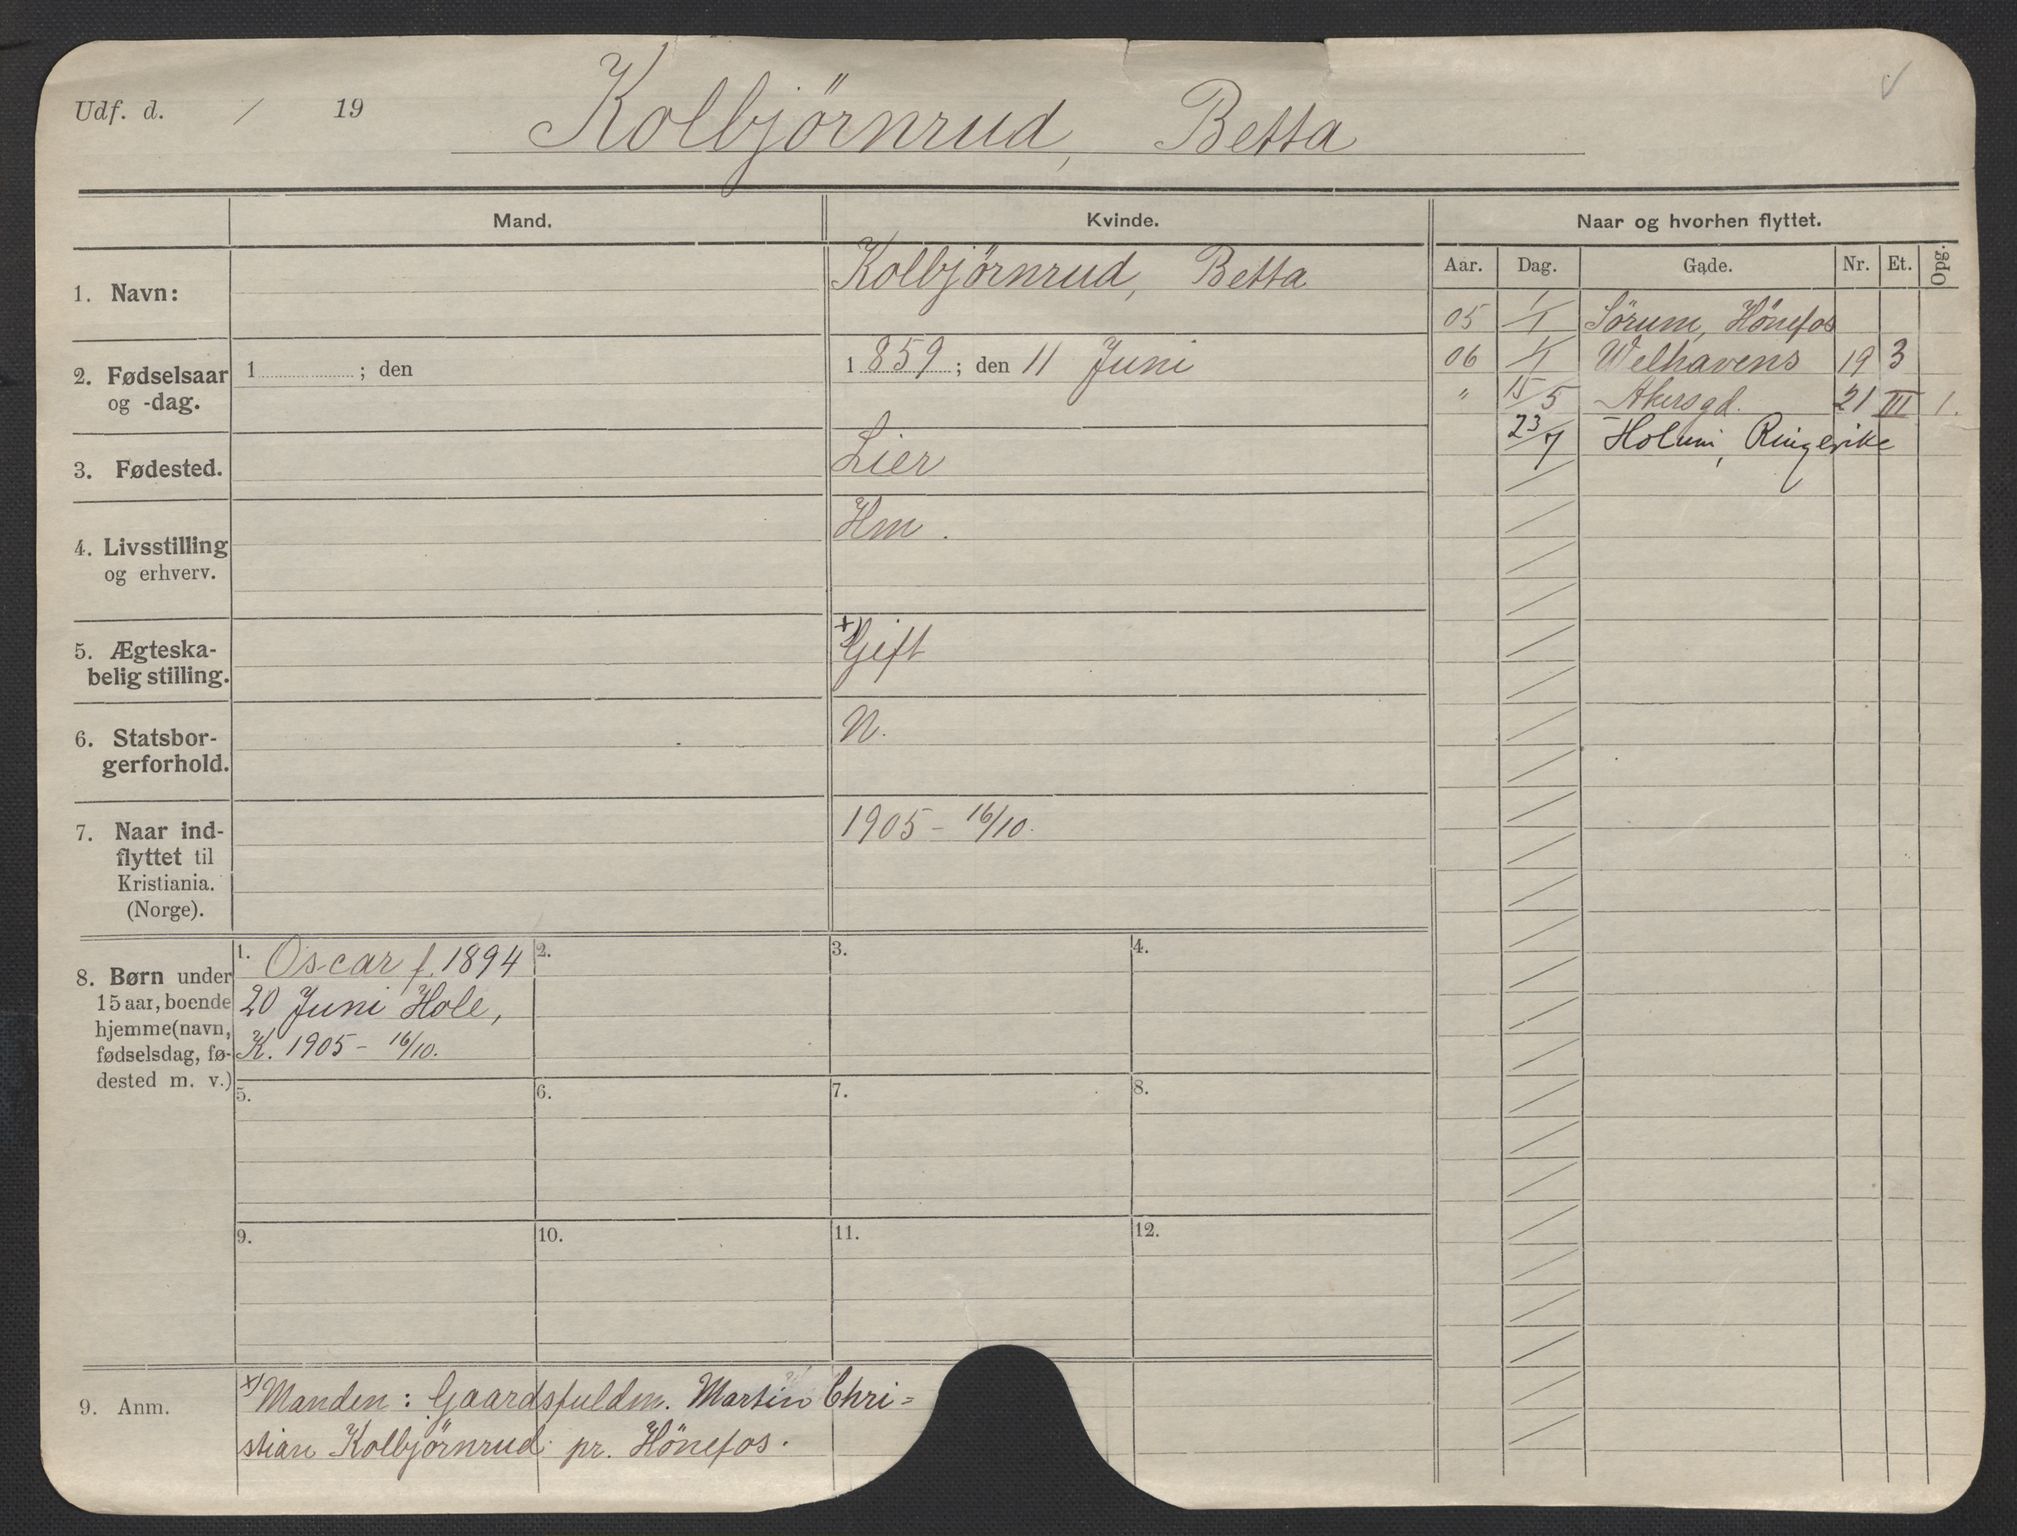 Udf. d. / 19 Kolbjörnrud, Betta
Mand. Kvinde. Naar og hvorhen flyttet.
Aar. Dag. Gade. Nr. Et. Opg.
1. Navn: Kolbjörnrud, Betta
05 1/1 Sörum, Hönefos
06 1/1 Welhavens 19 3
" 15/5 Akersgd. 21 III 1.
23/7 Ringerike
2. Fødselsaar 1 ; den 1859; den 11 Juni
og -dag.
3. Fødested. Lier
4. Livsstilling Hm.
og erhverv.
5. Ægteska- +) Gift
belig stilling.
6. Statsbor- N.
gerforhold.
7. Naar ind- 1905 - 16/10.
flyttet til
Kristiania.
(Norge).
8. Børn under
15 aar, boende
hjemme (navn,
fødselsdag, fø-
dested m. v.)
1. Oscar f. 1894
20 Juni Hole,
K. 1905 - 16/10.
2. 3. 4.
5. 6. 7. 8.
9. 10. 11. 12.
9. Anm.
x) Manden: Gaardsfuldm. Martin Chri=
stian Kolbjörnrud pr. Hönefos.